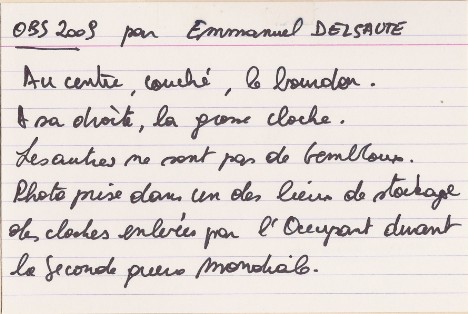 OBS 2009 par Emmanuel DELSAUTE
Au centre, couché, le bourdon.
A sa droite, la grosse cloche.
Les autres ne sont pas de Gembloux.
Photo prise dans un des lieux de stockage
des cloches enlevées par l'Occupant durant
la Seconde guerre Mondiale.